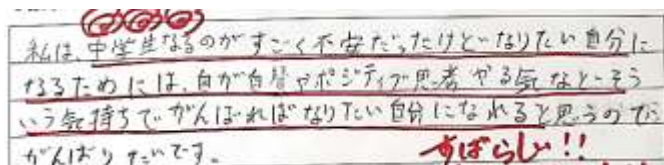 私は、中学生なるのがすごく不安だったけど、なりたい自分に
なるためには、自が自習やポジティブ思考やる気などそう
いう気持ちでがんばればなりたい自分になれると思うので
がんばりたいです。
すばらしい!!